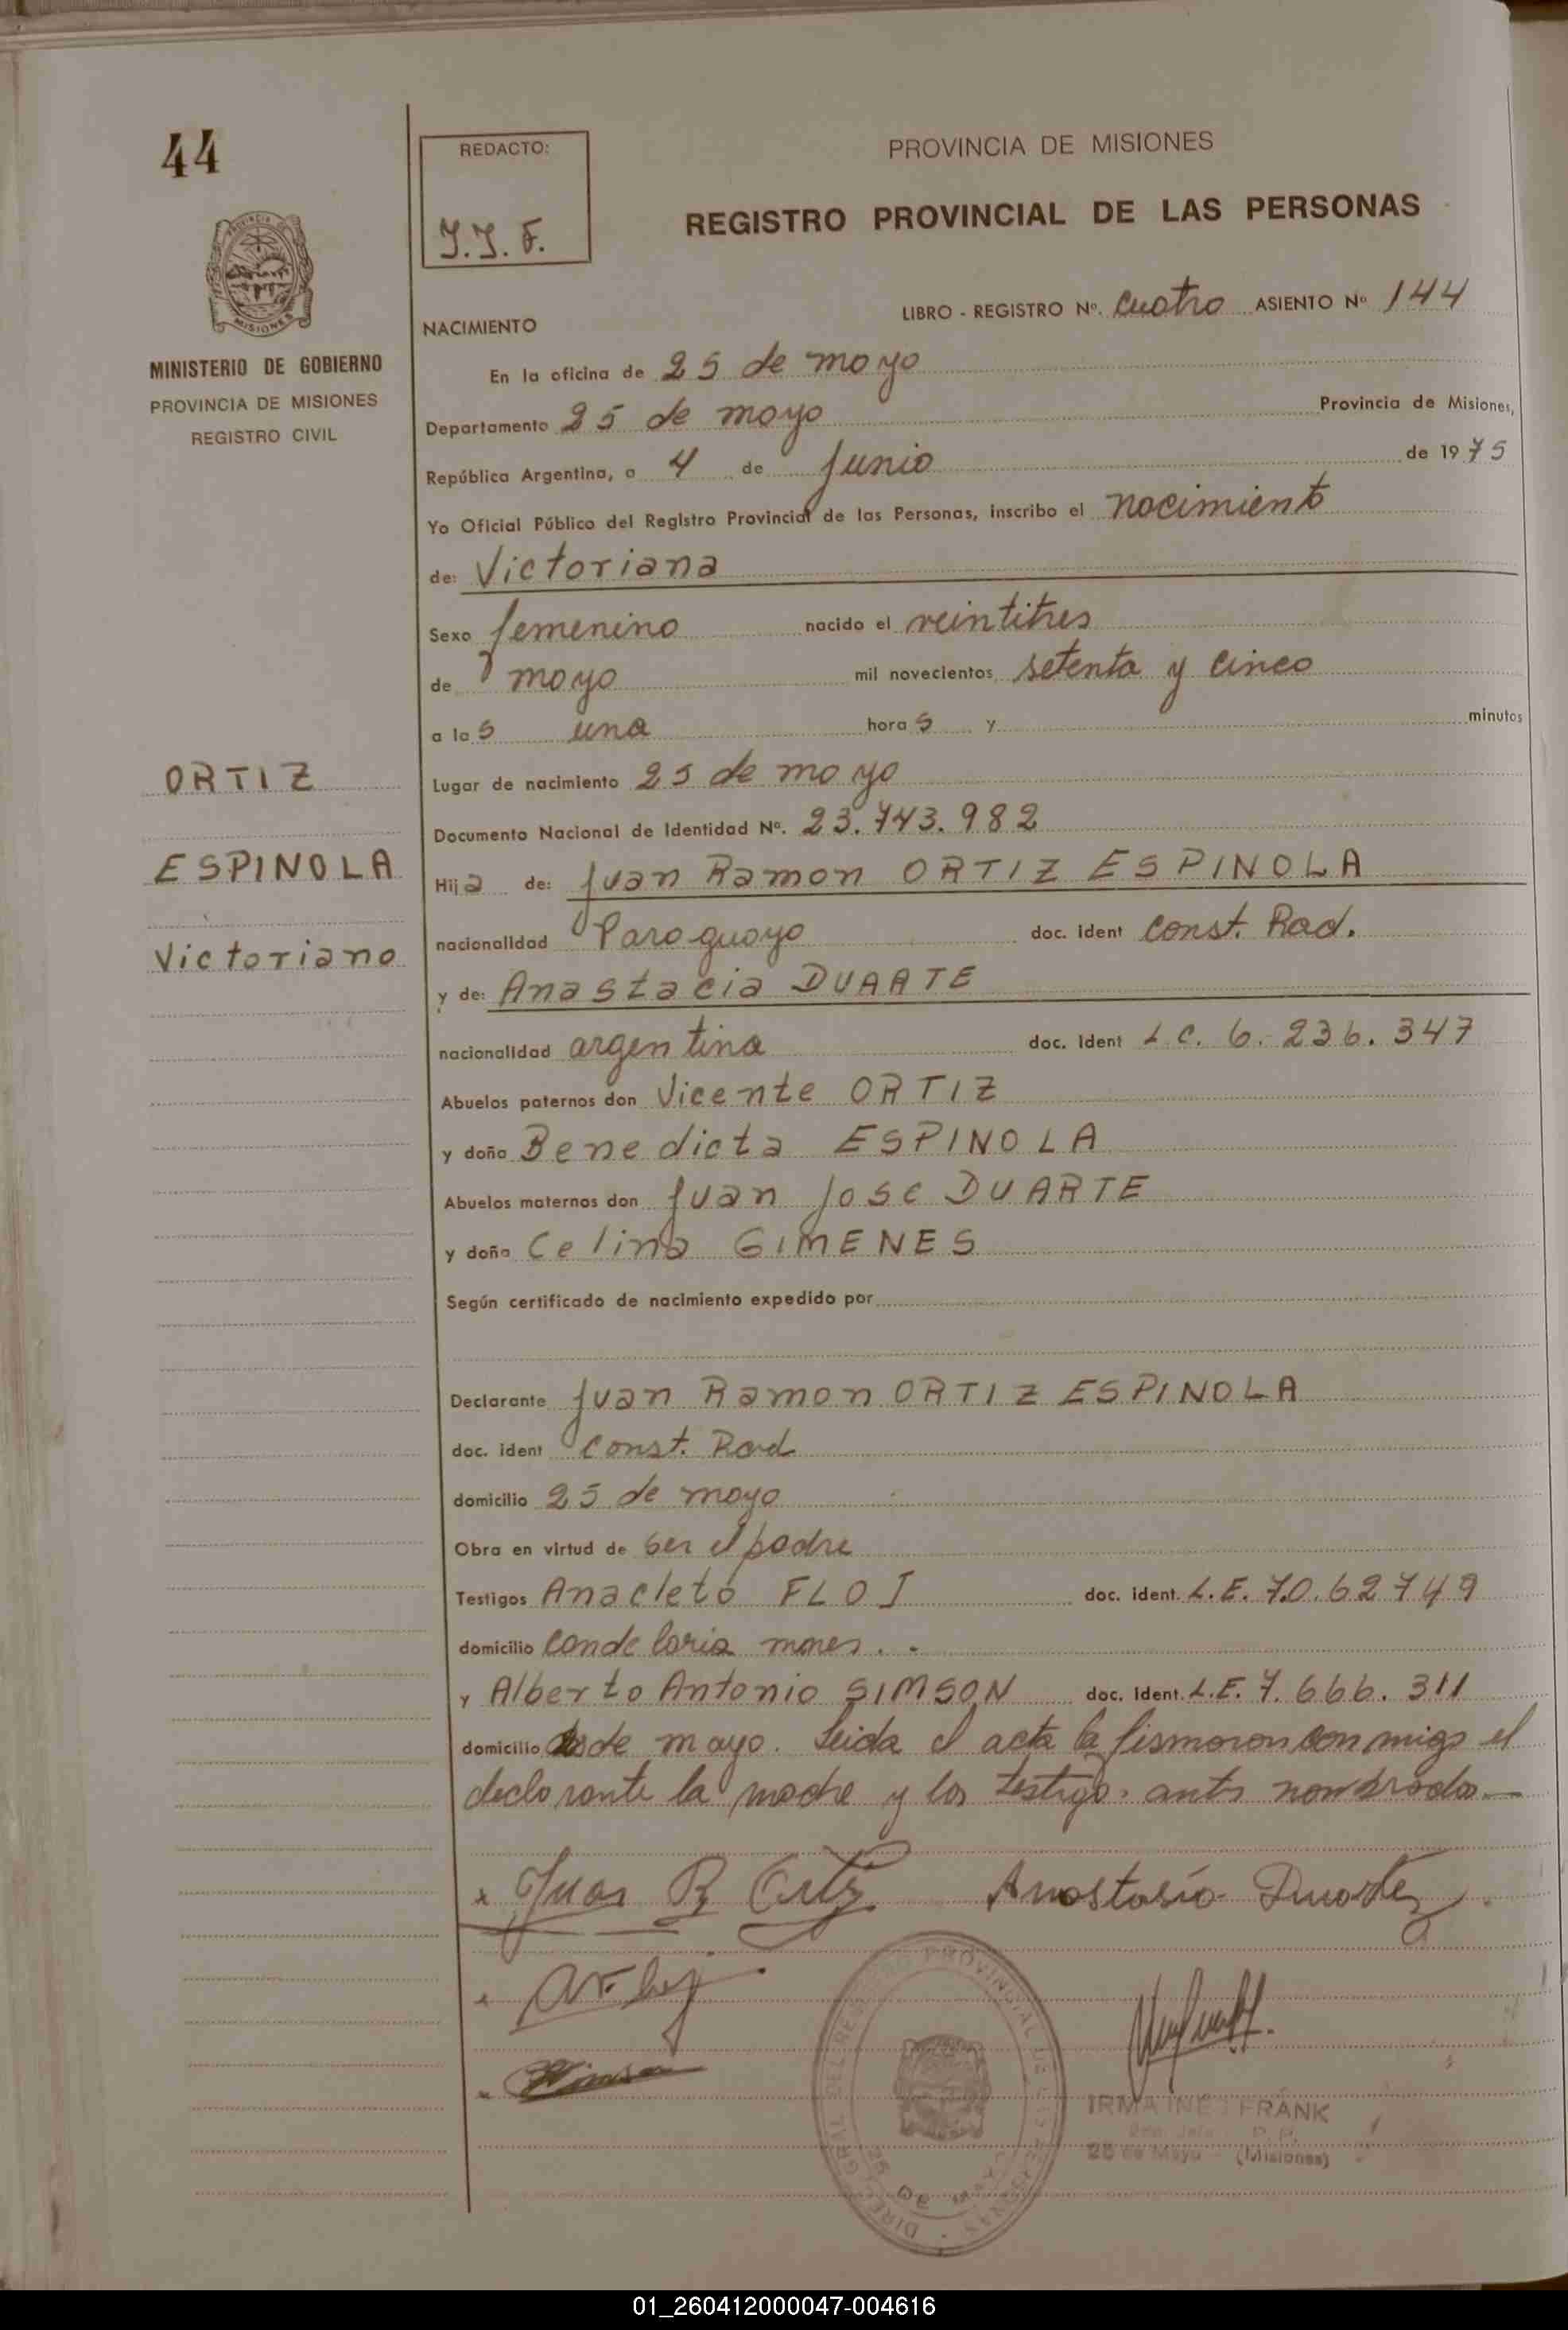 44
REDACTO:
J.J.F.
PROVINCIA DE MISIONES
REGISTRO PROVINCIAL DE LAS PERSONAS
MISIONES
MINISTERIO DE GOBIERNO
PROVINCIA DE MISIONES
REGISTRO CIVIL
ORTIZ
ESPINOLA
Victoriana
LIBRO - REGISTRO Nº. cuatro ASIENTO Nº 144
NACIMIENTO
En la oficina de 25 de mayo
Departamento 25 de mayo Provincia de Misiones,
República Argentina, a 4 de Junio de 1975
Yo Oficial Público del Registro Provincial de las Personas, inscribo el nacimiento
de: Victoriana
Sexo femenino nacido el veintitres
de mayo mil novecientos setenta y cinco
a las una horas y minutos
Lugar de nacimiento 25 de mayo
Documento Nacional de Identidad Nº. 23.743.982
Hija de: Juan Ramon ORTIZ ESPINOLA
nacionalidad Paraguayo doc. ident const. Rad.
y de: Anastacia DUARTE
nacionalidad argentina doc. ident L C. 6.236.347
Abuelos paternos don Vicente ORTIZ
y doña Benedicta ESPINOLA
Abuelos maternos don Juan Jose DUARTE
y doña Celina GIMENES
Según certificado de nacimiento expedido por
Declarante Juan Ramon ORTIZ ESPINOLA
doc. ident const. Rad
domicilio 25 de mayo
Obra en virtud de ser el padre
Testigos Anacleto FLOJ doc. ident. L.E. 7.0.62749
domicilio candelaria mnes..
y Alberto Antonio SIMSON doc. ident. L.E. 7.666.311
domicilio de mayo. Leida el acta la firmaron conmigo el
declarante la madre y los testigo. antes nombrados.—
Juan R Ortiz Anastasia Duarte
DIREC. GRAL. DEL REGISTRO PROVINCIAL DE LAS PERSONAS
25 DE MAYO
IRMA INES FRANK
25 de Mayo - (Misiones)
01_260412000047-004616